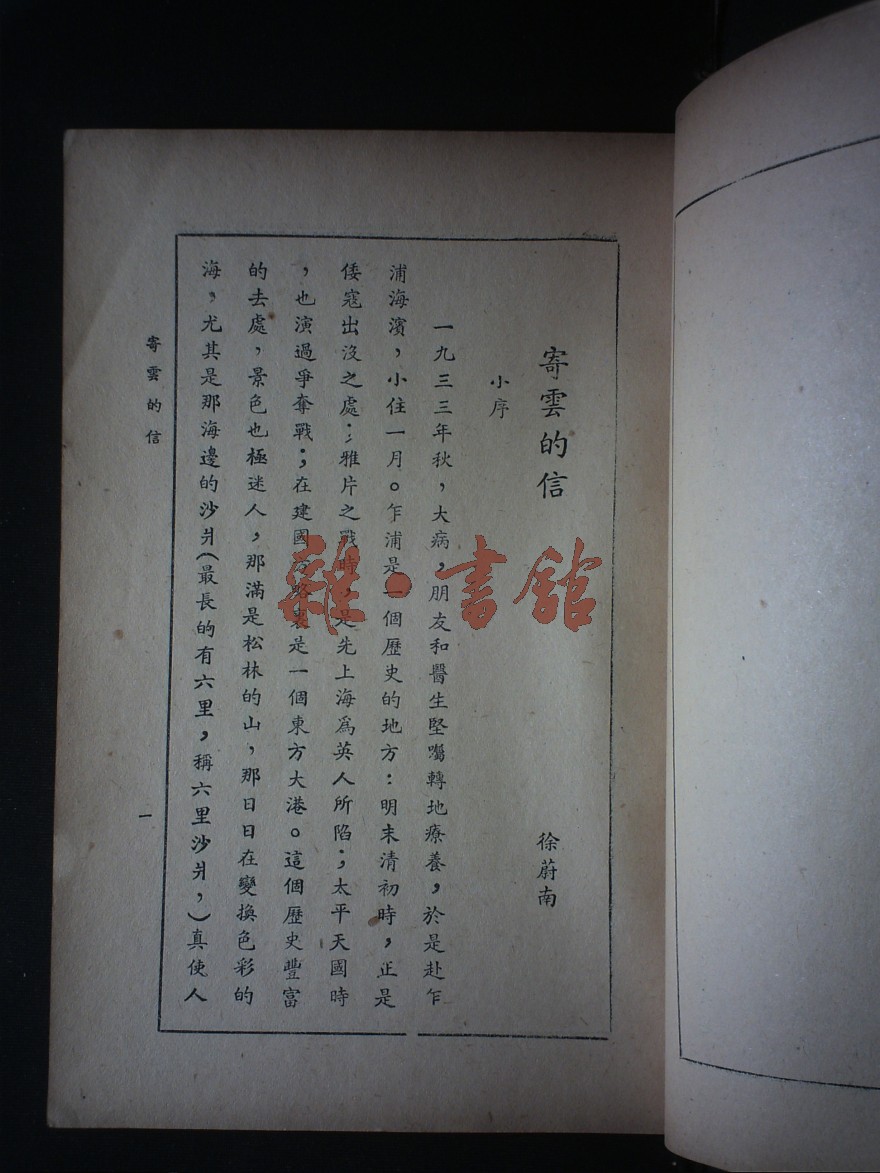 寄雲的信
徐蔚南
小序
一九三三年秋，大病，朋友和醫生堅囑轉地療養，於是赴乍
浦海濱，小住一月。乍浦是一個歷史的地方：明末清初時，正是
倭寇出沒之處；雅片之戰時，是先上海為英人所陷；太平天國時
，也演過爭奪戰；在建國方略裏是一個東方大港。這個歷史豐富
的去處，景色也極迷人，那滿是松林的山，那日日在變換色彩的
海，尤其是那海邊的沙爿（最長的有六里，稱六里沙爿，）真使人
寄雲的信
一
雜·書館